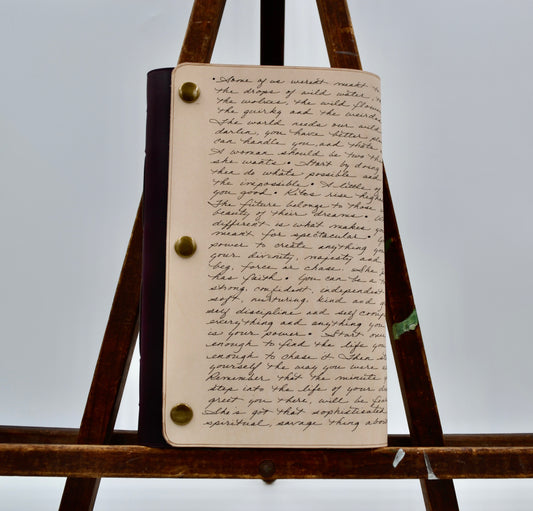 • Some of us weren't meant t
the drops of wild water,
the wolves, the wild flow
the quirky and the weirdo
The world needs our wild
darlin, you have better pl
can handle you, and thats
A woman should be two th
she wants • Start by doing
then do whats possible and
the impossible • A little of
you good • Kites rise highe
The future belongs to those
beauty of their dreams •
different is what makes y
meant for spectacular •
power to create anything y
your divinity, majesty and
beg, force or chase. She
has faith • You can be a
strong, confident, independent
soft, nurturing, kind and g
self discipline and self con
everything and anything you
is your power • Start
enough to find the life you
enough to chase it. Then
yourself the way you were
Remember that the minute
step into the life of your d
greet you there, will be fe
She's got that sophisticated
spiritual, savage thing abo